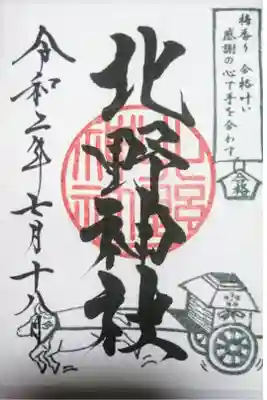 梅香り 合格叶い
感謝の心で手を合わす
合格
北野神社
令和二年七月十八日